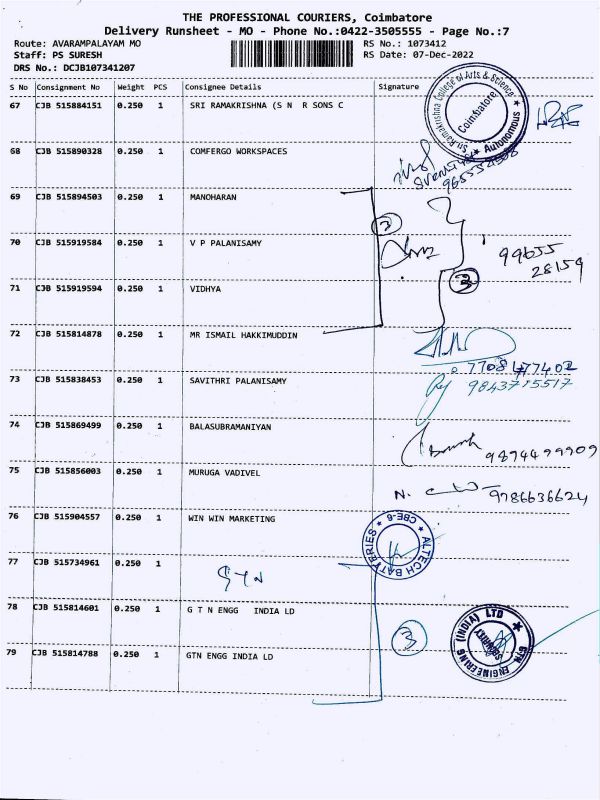 THE PROFESSIONAL COURIERS, Coimbatore
Delivery Runsheet - MO - Phone No.:0422-3505555 - Page No.:7
Route: AVARAMPALAYAM MO RS No.: 1073412
Staff: PS SURESH RS Date: 07-Dec-2022
DRS No.: DCJB107341207
S No Consignment No Weight PCS Consignee Details Signature
67 CJB 515884151 0.250 1 SRI RAMAKRISHNA (S N R SONS C
Sri Ramakrishna College of Arts & Science
Coimbatore
★ Autonomous ★
68 CJB 515890328 0.250 1 COMFERGO WORKSPACES
69 CJB 515894503 0.250 1 MANOHARAN
70 CJB 515919584 0.250 1 V P PALANISAMY
99655
28159
71 CJB 515919594 0.250 1 VIDHYA
72 CJB 515814878 0.250 1 MR ISMAIL HAKKIMUDDIN
7708477402
73 CJB 515838453 0.250 1 SAVITHRI PALANISAMY
9843715517
74 CJB 515869499 0.250 1 BALASUBRAMANIYAN
9894499909
75 CJB 515856003 0.250 1 MURUGA VADIVEL
9786636624
76 CJB 515904557 0.250 1 WIN WIN MARKETING
ALTECH BATTERIES ★ CBE-6 ★
77 CJB 515734961 0.250 1
GTN
78 CJB 515814601 0.250 1 G T N ENGG INDIA LD
3
GTN ENGINEERING (INDIA) LTD ★
SECURITY
79 CJB 515814788 0.250 1 GTN ENGG INDIA LD